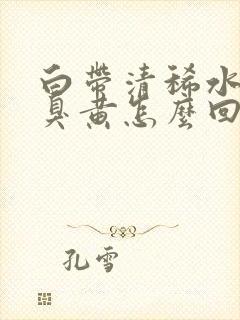 白帶清稀水
臭黃怎麼回
孔雪